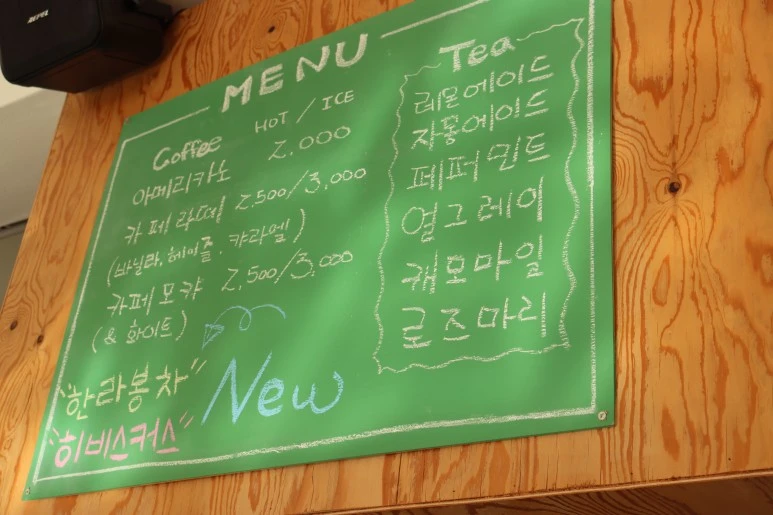 AEPEL
MENU
Coffee HOT / ICE
아메리카노 2,000
카페라떼 2,500/3,000
(바닐라, 헤이즐, 캬라멜)
카페모캬 2,500/3,000
(& 화이트)
"한라봉차"
"히비스커스"
New
Tea
레몬에이드
자몽에이드
페퍼민트
얼그레이
캐모마일
로즈마리